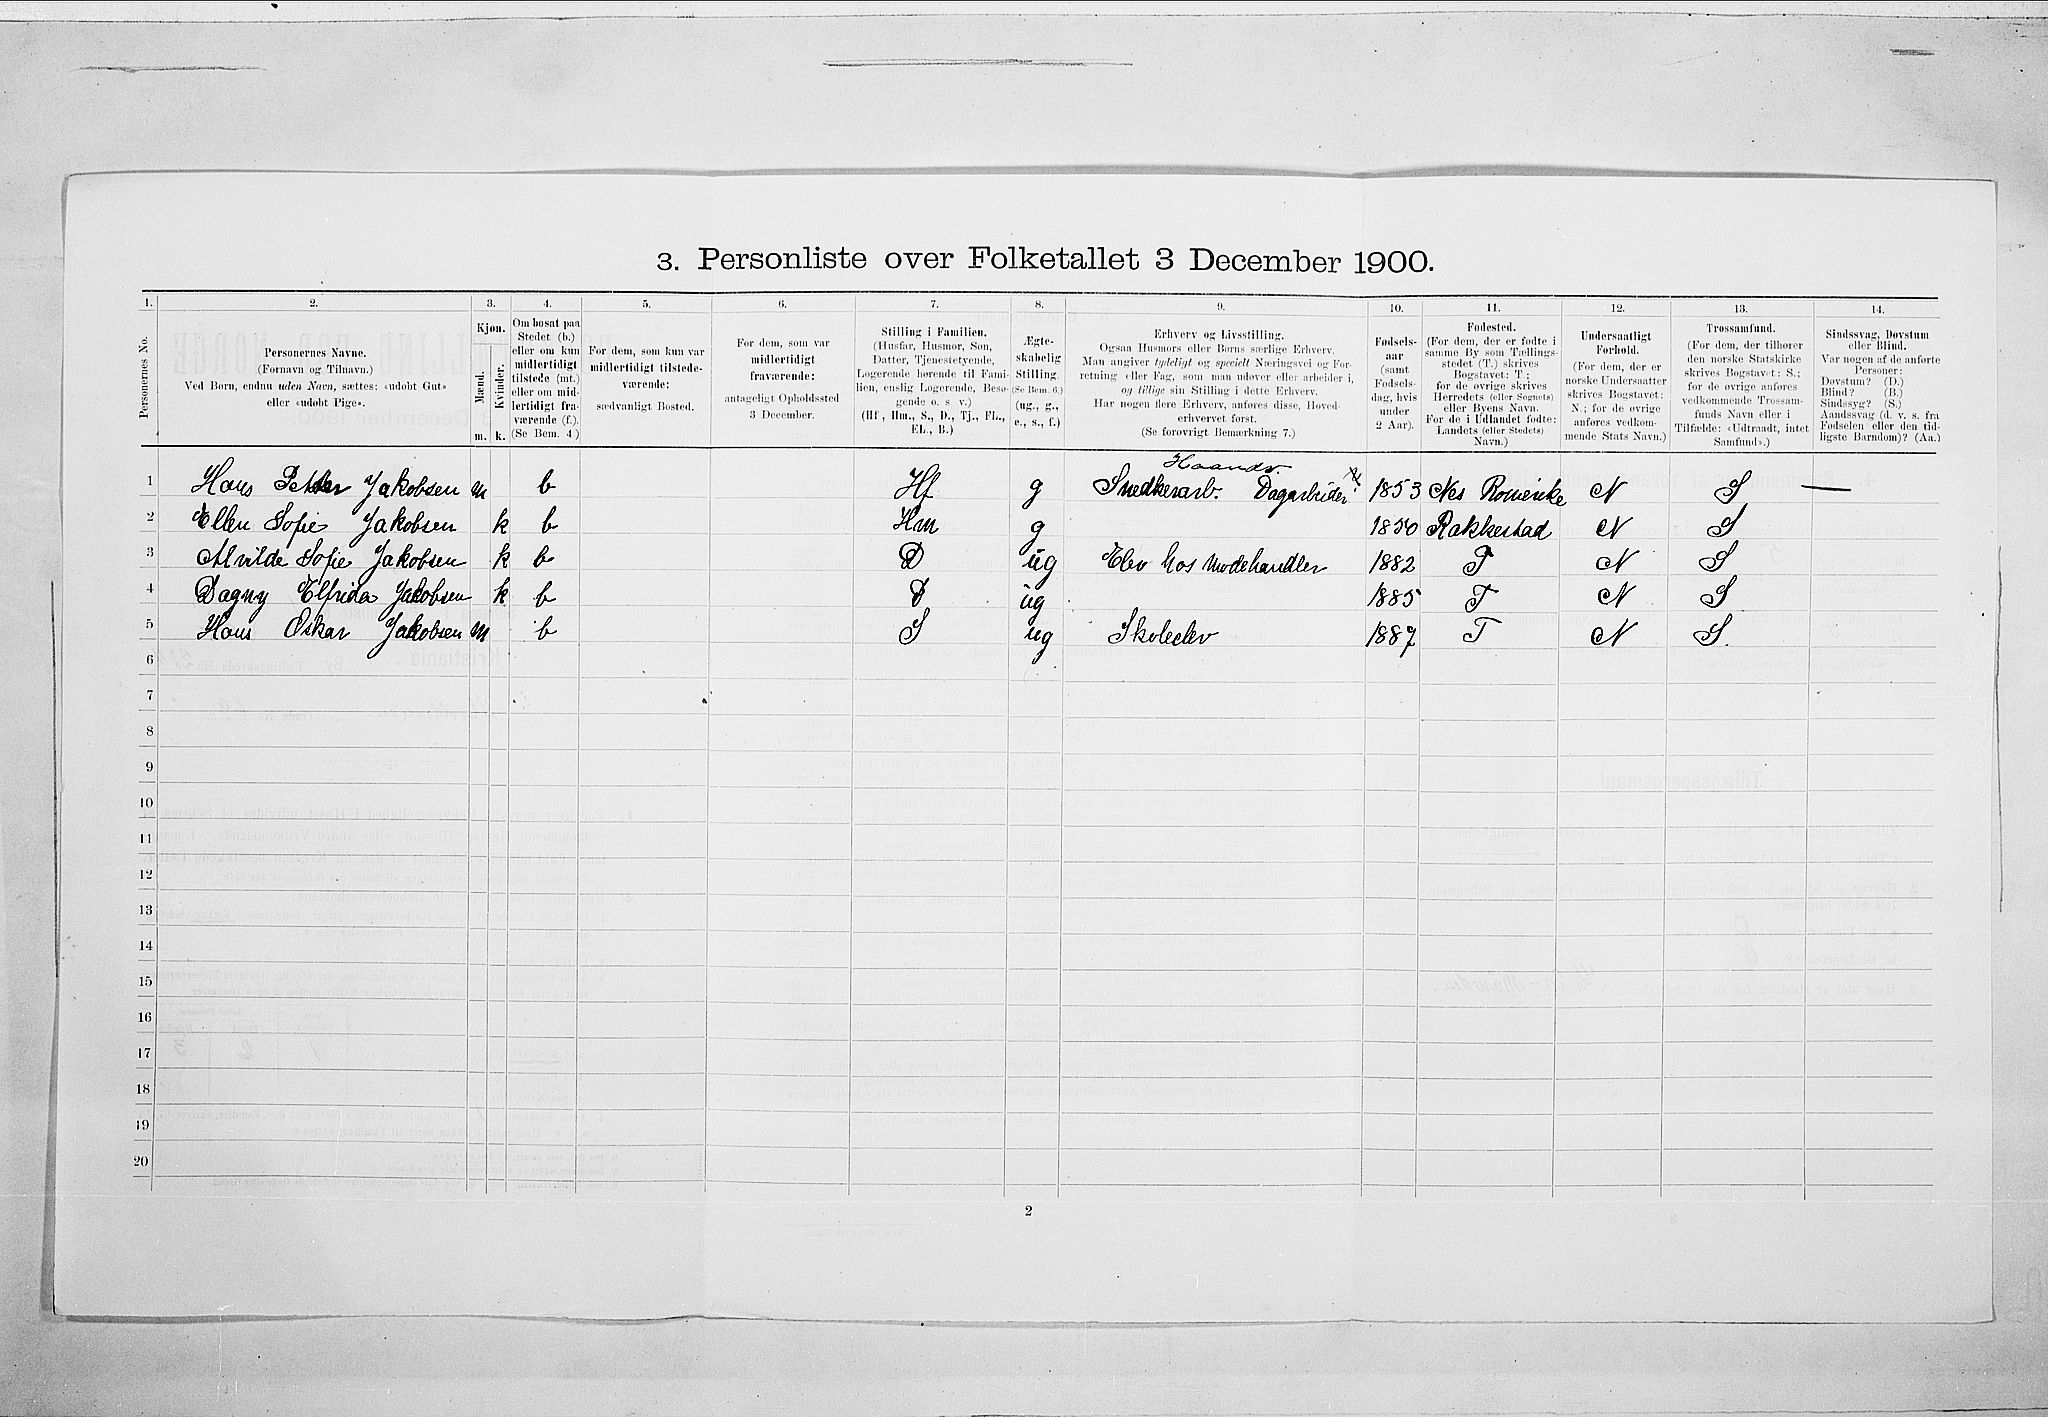 3. Personliste over Folketallet 3 December 1900.
1. 2. 3. 4. 5. 6. 7. 8. 9. 10. 11. 12. 13. 14.
Personernes No.
Personernes Navne.
(Fornavn og Tilnavn.)
Ved Børn, endnu uden Navn, sættes: «udøbt Gut»
eller «udøbt Pige».
Kjøn.
Mænd.
Kvinder.
m. k.
Om bosat paa
Stedet (b.)
eller om kun
midlertidigt
tilstede (mt.)
eller om mid-
lertidigt fra-
værende (f.).
(Se Bem. 4.)
For dem, som kun var
midlertidigt tilstede-
værende:
sædvanligt Bosted.
For dem, som var
midlertidigt
fraværende:
antageligt Opholdssted
3 December.
Stilling i Familien.
(Husfar, Husmor, Søn,
Datter, Tjenestetyende,
Logerende hørende til Fami-
lien, enslig Logerende, Besø-
gende o. s. v.)
(Hf., Hm., S., D., Tj., FL.,
EL., B.)
Ægte-
skabelig
Stilling.
(Se Bem. 6.)
(ug., g.,
e., s., f.)
Erhverv og Livsstilling.
Ogsaa Husmors eller Børns særlige Erhverv.
Man angiver tydeligt og specielt Næringsvei og For-
retning eller Fag, som man udøver eller arbeider i,
og tillige sin Stilling i dette Erhverv.
Har nogen flere Erhverv, anføres disse, Hoved-
erhvervet først.
(Se forøvrigt Bemærkning 7.)
Fødsels-
aar
(samt
Fødsels-
dag, hvis
under
2 Aar).
Fødested.
(For dem, der er fødte i
samme By som Tællings-
stedet (T.) skrives
Bogstavet: T.;
for de øvrige skrives
Herredets (eller Sognets)
eller Byens Navn.
For de i Udlandet fødte:
Landets (eller Stedets)
Navn.)
Undersaatligt
Forhold.
(For dem, der er
norske Undersaatter
skrives Bogstavet:
N.; for de øvrige
anføres vedkom-
mende Stats Navn.)
Trossamfund.
(For dem, der tilhører
den norske Statskirke
skrives Bogstavet: S.;
for de øvrige anføres
vedkommende Trossam-
funds Navn eller i
Tilfælde: «Udtraadt, intet
Samfund».)
Sindssvag, Døvstum
eller Blind.
Var nogen af de anførte
Personer:
Døvstum? (D.)
Blind? (B.)
Sindssyg? (S.)
Aandssvag (d. v. s. fra
Fødselen eller den tid-
ligste Barndom)? (Aa.)
Haandv.
1 Hans Petter Jakobsen m b Hf g Snedkerarb. Dagarbeider 1853 Nes Romerike N S —
2 Ellen Sofie Jakobsen k b Hm g 1850 Rakkestad N S
3 Alvilde Sofie Jakobsen k b D ug Elev hos Modehandler 1882 T N S
4 Dagny Elfrida Jakobsen k b D ug 1885 T N S
5 Hans Oskar Jakobsen m b S ug Skoleelev 1887 T N S.
6
7
8
9
10
11
12
13
14
15
16
17
18
19
20
2